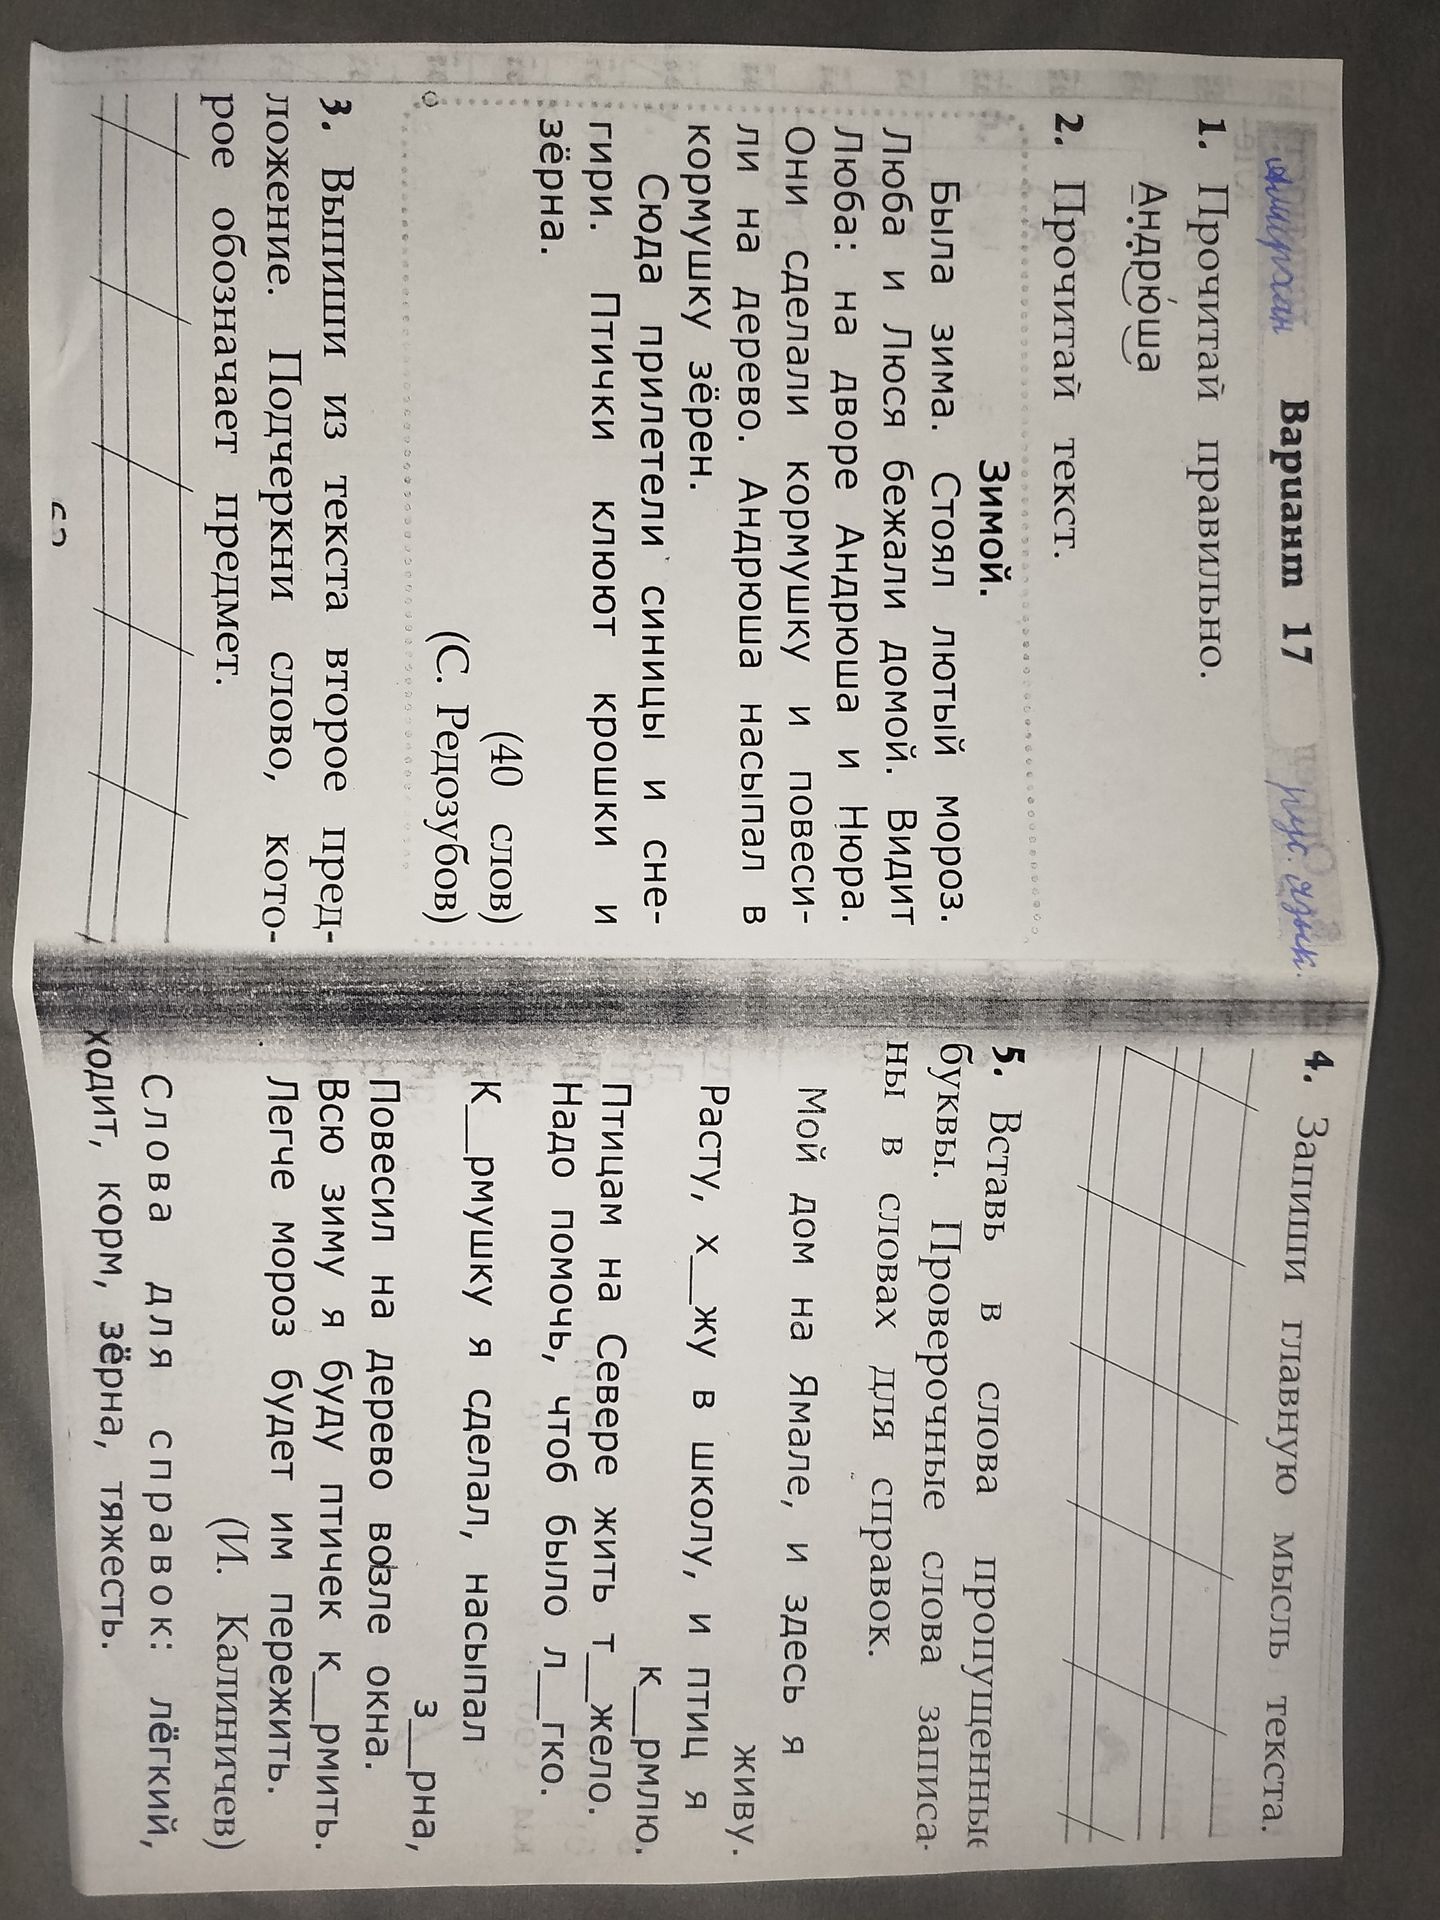 Амирхан Вариант 17 рус. язык.
1. Прочитай правильно.
Андрю́ша
2. Прочитай текст.
Зимой.
Была зима. Стоял лютый мороз.
Люба и Люся бежали домой. Видит
Люба: на дворе Андрюша и Нюра.
Они сделали кормушку и повеси-
ли на дерево. Андрюша насыпал в
кормушку зёрен.
Сюда прилетели синицы и сне-
гири. Птички клюют крошки и
зёрна.
(40 слов)
(С. Редозубов)
3. Выпиши из текста второе пред-
ложение. Подчеркни слово, кото-
рое обозначает предмет.
4. Запиши главную мысль текста.
5. Вставь в слова пропущенные
буквы. Проверочные слова записа-
ны в словах для справок.
Мой дом на Ямале, и здесь я
живу.
Расту, х__жу в школу, и птиц я
к__рмлю.
Птицам на Севере жить т__жело.
Надо помочь, чтоб было л__гко.
К__рмушку я сделал, насыпал
з__рна,
Повесил на дерево возле окна.
Всю зиму я буду птичек к__рмить.
Легче мороз будет им пережить.
(И. Калиничев)
Слова для справок: лёгкий,
ходит, корм, зёрна, тяжесть.